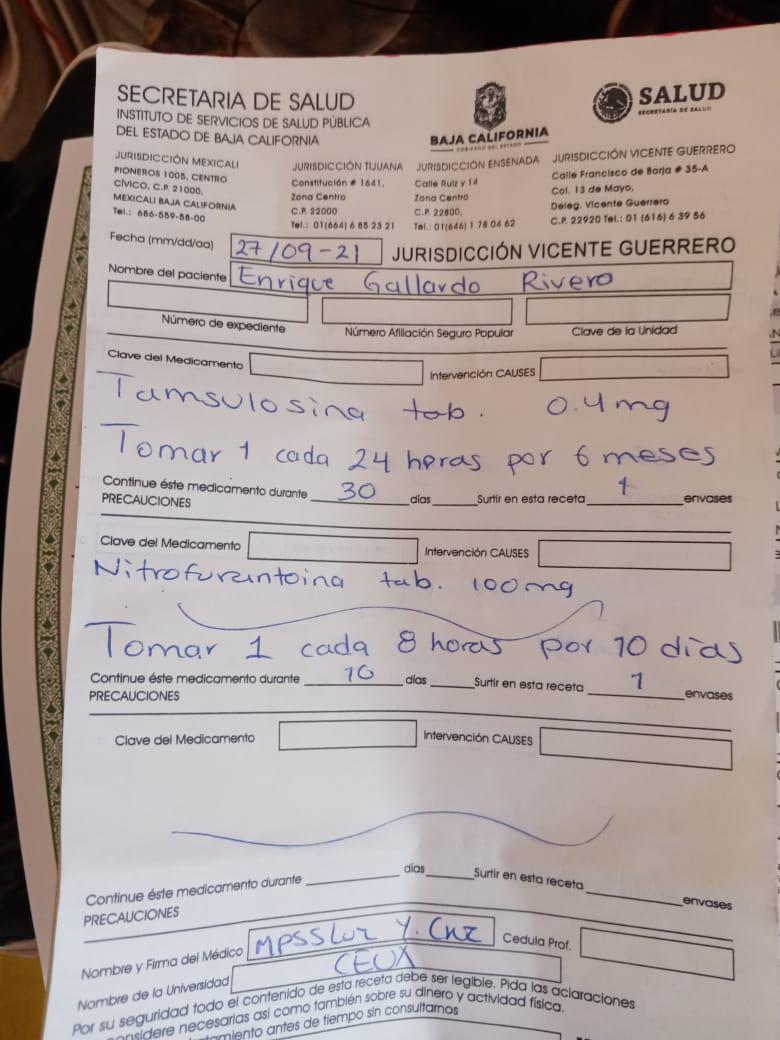 SECRETARIA DE SALUD
INSTITUTO DE SERVICIOS DE SALUD PÚBLICA
DEL ESTADO DE BAJA CALIFORNIA
BAJA CALIFORNIA
GOBIERNO DEL ESTADO
SALUD
SECRETARÍA DE SALUD
JURISDICCIÓN MEXICALI
PIONEROS 1005, CENTRO
CÍVICO, C.P. 21000,
MEXICALI BAJA CALIFORNIA
Tel.: 686-559-58-00
JURISDICCIÓN TIJUANA
Constitución # 1641,
Zona Centro
C.P. 22000
Tel.: 01(664) 6 85 23 21
JURISDICCIÓN ENSENADA
Calle Ruiz y 14
Zona Centro
C.P. 22800,
Tel.: 01(646) 1 78 04 62
JURISDICCIÓN VICENTE GUERRERO
Calle Francisco de Borja # 35-A
Col. 13 de Mayo,
Deleg. Vicente Guerrero
C.P. 22920 Tel.: 01 (616) 6 39 56
Fecha (mm/dd/aa) 27/09-21 JURISDICCIÓN VICENTE GUERRERO
Nombre del paciente Enrique Gallardo Rivera
Número de expediente Número Afiliación Seguro Popular Clave de la Unidad
Clave del Medicamento Intervención CAUSES
Tamsulosina tab. 0.4mg
Tomar 1 cada 24 horas por 6 meses
Continue éste medicamento durante 30 días Surtir en esta receta 1 envases
PRECAUCIONES
Clave del Medicamento Intervención CAUSES
Nitrofurantoina tab. 100mg
Tomar 1 cada 8 horas por 10 días
Continue éste medicamento durante 10 días Surtir en esta receta 1 envases
PRECAUCIONES
Clave del Medicamento Intervención CAUSES
Continue éste medicamento durante días Surtir en esta receta envases
PRECAUCIONES
Nombre y Firma del Médico MPSS Luz Y. Cruz Cedula Prof.
Nombre de la Universidad CEUX
Por su seguridad todo el contenido de esta receta debe ser legible. Pida las aclaraciones
considere necesarias así como también sobre su dinero y actividad física.
antes de tiempo sin consultarnos